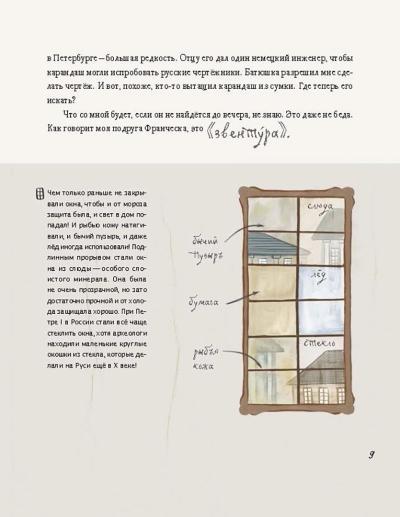 в Петербурге — большая редкость. Отцу его дал один немецкий инженер, чтобы
карандаш могли испробовать русские чертёжники. Батюшка разрешил мне сде-
лать чертёж. И вот, похоже, кто-то вытащил карандаш из сумки. Где теперь его
искать?
Что со мной будет, если он не найдётся до вечера, не знаю. Это даже не беда.
Как говорит моя подруга Франческа, это «звентýра».
Чем только раньше не закры-
вали окна, чтобы и от мороза
защита была, и свет в дом по-
падал! И рыбью кожу натяги-
вали, и бычий пузырь, и даже
лёд иногда использовали! Под-
линным прорывом стали ок-
на из слюды — особого сло-
истого минерала. Она была
не очень прозрачной, но зато
достаточно прочной и от холо-
да защищала хорошо. При Пе-
тре I в России стали всё чаще
стеклить окна, хотя археологи
находили и маленькие круглые
окошки из стекла, которые де-
лали на Руси ещё в X веке!
слюда
бычий
пузырь
лёд
бумага
стекло
рыбья
кожа
9